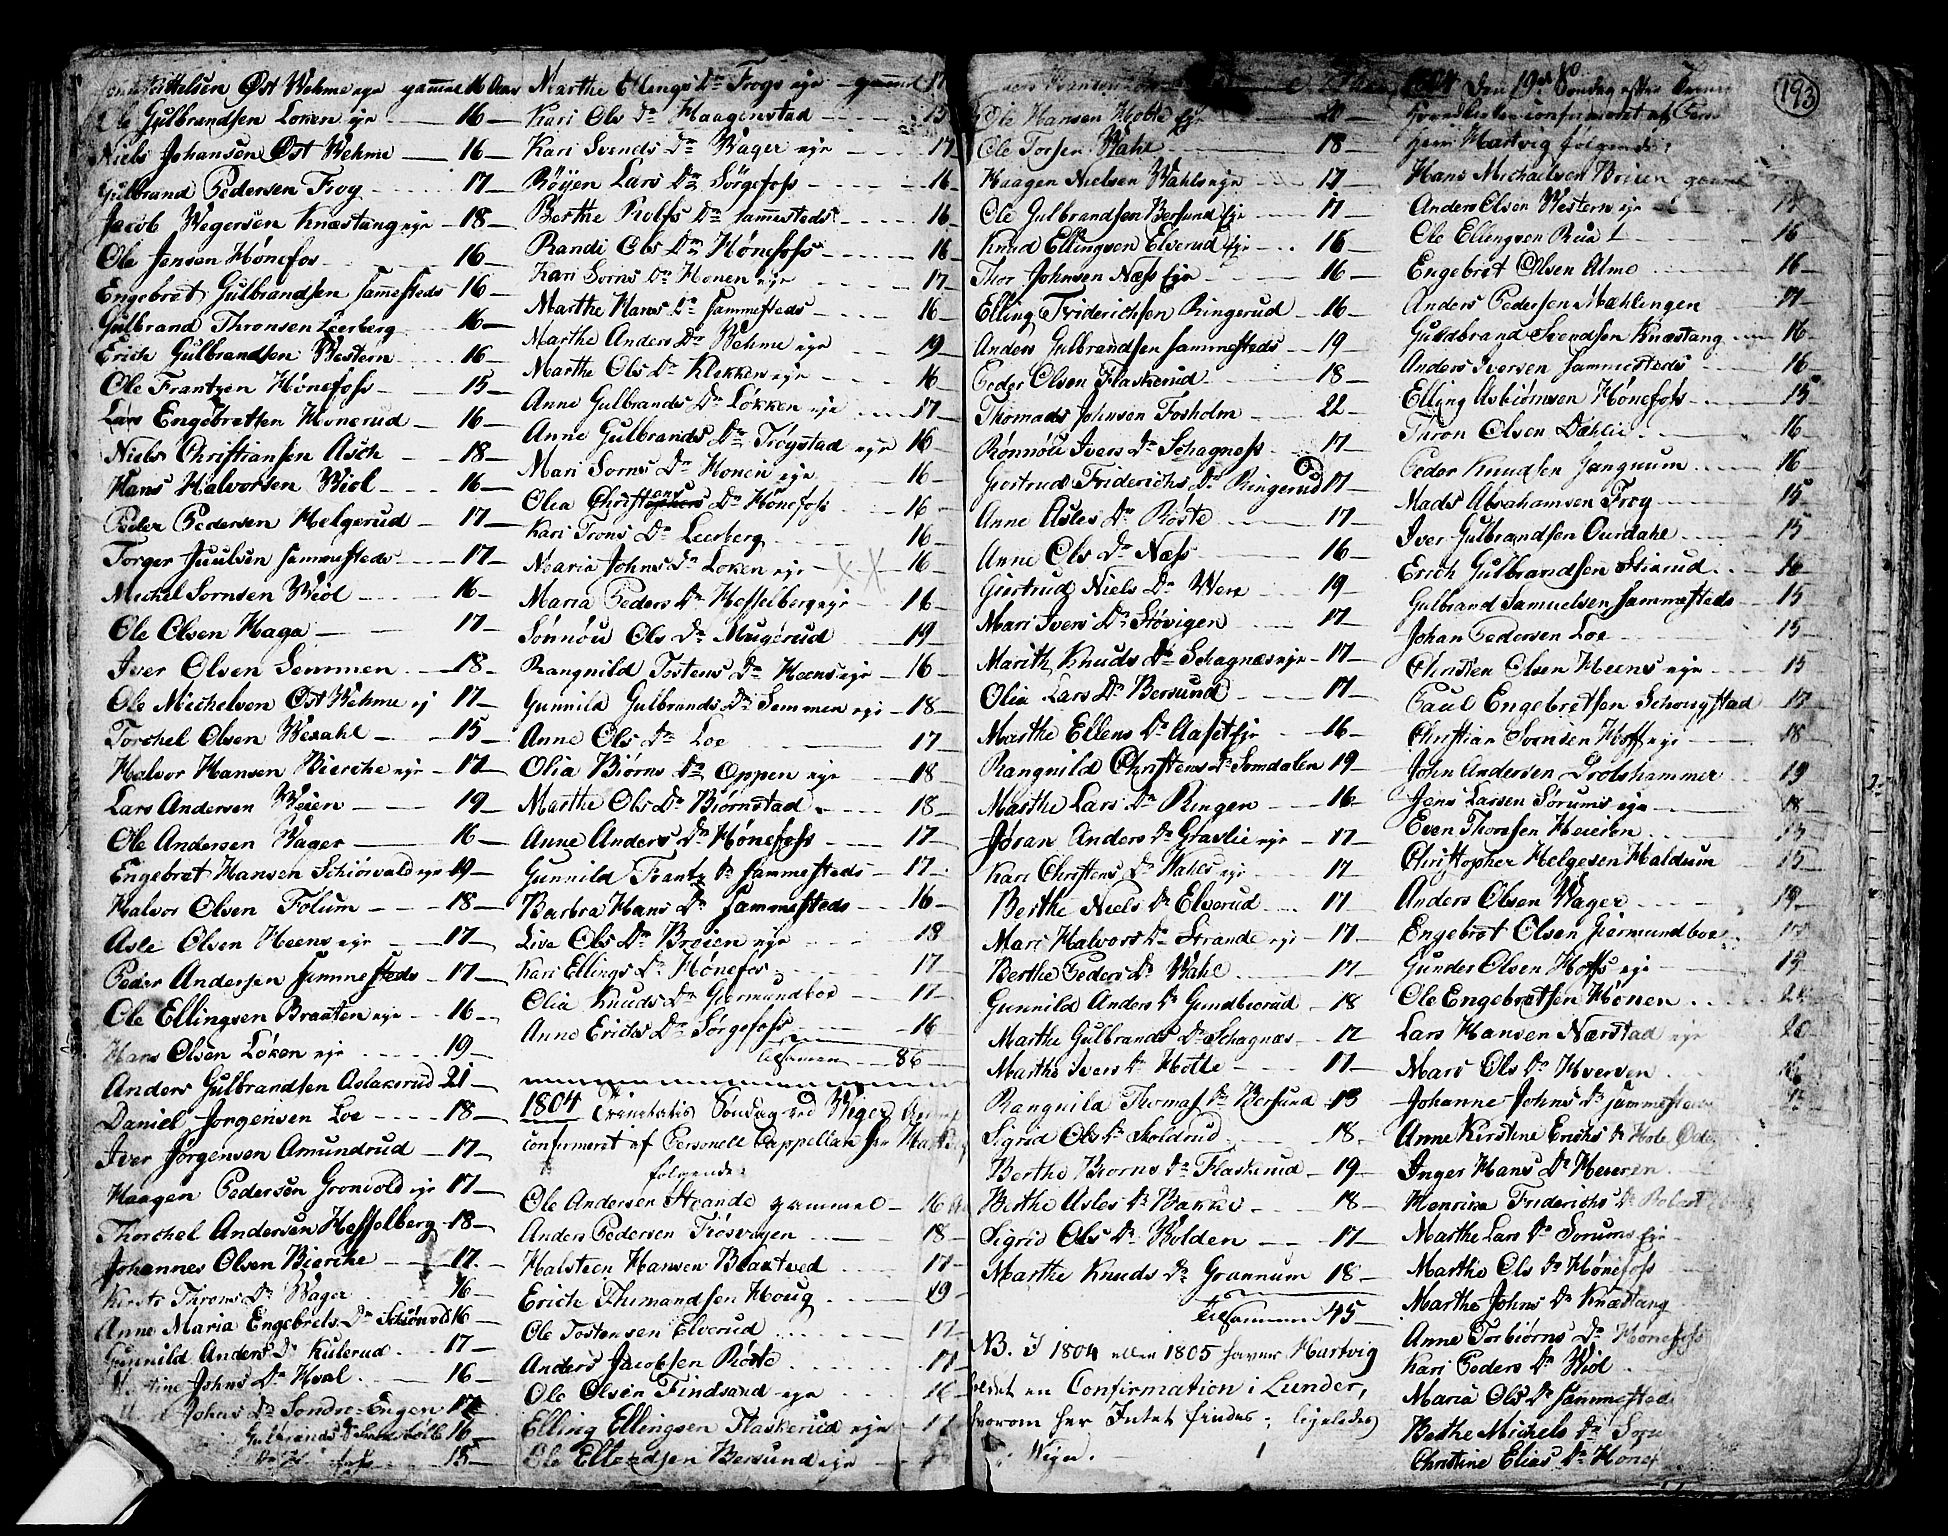 Østwehme eye gammel 16 Aar
Ole Gulbrandsen Loken eye 16
Niels Johansen Øst Wehme 16
Gulbrand Pedersen Frog 17
Jacob Wegersen Knæstang eye 18
Ole Jensen Hønefos 16
Engebret Gulbrandsen sammesteds 16
Gulbrand Thronsen Leerberg 16
Erich Gulbrandsen Western 16
Ole Frantzen Hønefoss 15
Lars Engebretsen Honerud 16
Niels Christiansen Asch 18
Hans Halvorsen Wiol 16
Peder Pedersen Helgerud 17
Torger Juulsen sammesteds 17
Michel Sornsen Wiol 16
Ole Olsen Haga 17
Iver Olsen Semmen 18
Ole Michelsen Øst Wehme ej 17
Torchel Olsen Wesahl 15
Halvor Hansen Bierche eye 17
Lars Andersen Weien 19
Ole Andersen Wager 16
Engebret Hansen Schiørvold eye 19
Halvor Olsen Folum 18
Asle Olsen Heens eye 17
Peder Andersen sammesteds 17
Ole Ellingsen Braaten eye 16
Hans Olsen Løken eye 19
Anders Gulbrandsen Aslakerud 21
Daniel Jørgensen Loe 18
Iver Jørgensen Amundrud 17
Haagen Pedersen Gronvold eye 17
Thorchel Andersen Hesselberg 18
Johannes Olsen Bierche 17
Kirsti Throns Dr Wager 16
Anne Maria Engebrets Dr Schiørvold 16
Gunnild Anders Dr Kulerud 17
Johns Dr Hval 16
Johns Dr Sondre-Engen 17
Gulbrands Dr 16
15
Marthe Ellings Dr Frogs eye gammel 17
Kari Ols Dr Haagenstad 15
Kari Svends Dr Wager eye 17
Røyen Lars Dr Sørgefoss 16
Berthe Rolfs Dr sammesteds 16
Randi Ols Dr Hønefoss 16
Kari Sorns Dr Honen eye 17
Marthe Hans Dr sammesteds 16
Marthe Anders Dr Wehme eye 19
Marthe Ols Dr Klekken eye 16
Anne Gulbrands Dr Løkken eye 17
Anne Gulbrands Dr Trøgstad eye 16
Mari Sorns Dr Honen eye 16
Olia Christians Dr Hønefoss 16
Kari Trons Dr Leerberg 16
Maria Johns Dr Loken eye 16
Maria Peders Dr Hesselberg eye 16
Sønnøu Ols Dr Maugerud 19
Rangnild Tostens Dr Heens eye 16
Gunnild Gulbrands Dr Semmen eye 18
Anne Ols Dr Loe 17
Olia Biørns Dr Oppen eye 18
Marthe Ols Dr Biørnstad 18
Anne Anders Dr Hønefoss 17
Gunnild Frantz Dr sammesteds 17
Barbra Hans Dr Sammesteds 16
Live Ols Dr Broien eye 18
Kari Ellings Dr Hønefos 17
Olia Knuds Dr Giermundboe 17
Anne Erichs Dr Sørgefoss 16
tilsamen 86
1804 Trinitatis Søndag ved Wiger
confirmeret af Personell Cappellan Hr Hartvig
følgende:
Ole Andersen Strande gammel 16
Anders Pedersen Trøsvogen 18
Halsteen Hansen Blaxtved 17
Erich Themandsen Houg 19
Ole Tostensen Elverud 17
Anders Jacobsen Røste 17
Ole Olsen Findsand eye 16
Elling Ellingsen Flaskerud eye 17
Ole Bersund eye
Ole Hansen Hotte eye 20
Ole Torsen Wahl 18
Haagen Nielsen Wahls eye 17
Ole Gulbrandsen Bersund eye 17
Knud Ellingsen Elverud eye 16
Thor Johnsen Næss eye 16
Elling Friderichsen Ringerud 16
Anders Gulbrandsen sammesteds 19
Peder Olsen Flaskerud 18
Thomas Johnsen Fosholm 22
Rønnøu Ivers Dr Schagness 17
Giertrud Friderichs Dr Ringerud 17
Anne Asles Dr Røste 17
Anne Ols Dr Næss 16
Giertrud Niels Dr Were 19
Mari Ivers Dr Støvigen 17
Marith Knuds Dr Schagnæs eye 17
Olia Lars Dr Bersund 17
Marthe Ellens Dr Aaset eje 16
Rangnild Christens Dr Somdalen 19
Marthe Lars Dr Ringen 16
Jøran Anders Dr Gravlie eye 17
Kari Christens Dr Wahls eye 17
Berthe Niels Dr Elverud 17
Mari Halvors Dr Strande eye 17
Berthe Peders Dr Wahl 17
Gunnild Anders Dr Gundbiorud 18
Marthe Gulbrands Dr Schagnæs 17
Marthe Ivers Dr Hotte 17
Rangnild Thomas Dr Bersund 18
Sigrid Ols Dr Skoldrud 18
Berthe Biorns Dr Flaskerud 19
Berthe Asles Dr Bakke 18
Sigrid Ols Dr Wolden 17
Marthe Knuds Dr Grannum 18
Tilsammen 45
NB. I 1804 eller 1805 haver Hartvig
holdt en Confirmation i Lunder,
hvorom her Intet findes; ligeledes
i Wiger.
193
1804 Den 19de Søndag efter
confirmeret af
Herr Hartvig følgende:
Hans Michaelsen Broien gammel
Anders Olsen Western eye 17
Ole Ellingsen Rua 16
Engebret Olsen Almo 16
Anders Pedersen Mæhlingen 17
Guldbrand Svendsen Knæstang 16
Anders Iversen sammesteds 16
Elling Asbiørnsen Hønefoss 15
Thron Olsen Dæhlie 16
Peder Knudsen Jangnum 16
Mads Abrahamsen Frog 15
Iver Gulbrandsen Ourdahl 15
Erich Gulbrandsen Stixrud 16
Gulbrand Samuelsen sammesteds 15
Johan Pedersen Loe 15
Christen Olsen Heens eye 15
Paul Engebretsen Schougstad 17
Christian Svensen Hoff eye 18
John Andersen Drolshammer 19
Jens Larsen Sørums eye 18
Even Thoresen Heieren 15
Christopher Helgesen Haldum 15
Anders Olsen Wager 19
Engebret Olsen Giermundboe 17
Gunder Olsen Hoffs eye 19
Ole Engebretsen Hønen 20
Lars Hansen Nærstad eye 20
Mari Ols Dr Hversen 16
Johanne Johns Dr sammesteds
Anne Kirstine Erichs Dr Hole
Inger Hans Dr Heieren
Henrica Friderichs Dr
Marthe Lars Dr Sorums eje
Marthe Ols Dr Hønefoss
Marthe Johns Dr Knæstang
Anne Torbiørns Dr Honefoss
Kari Peders Dr Wiol
Maria Ols Dr sammesteds
Berthe Michels Dr
Christine Elias Dr Honef